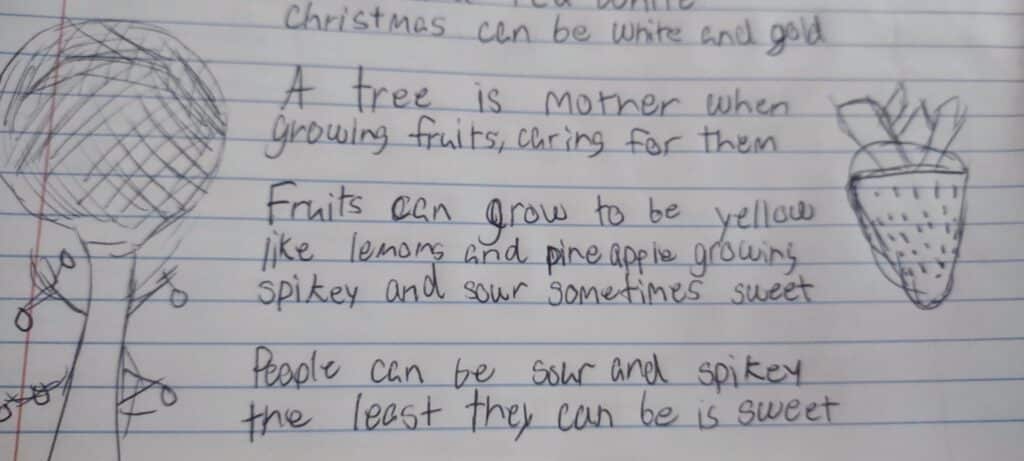 Christmas can be white and gold
A tree is mother when
growing fruits, caring for them
Fruits can grow to be yellow
like lemons and pineapple growing
spikey and sour sometimes sweet
People can be sour and spikey
the least they can be is sweet